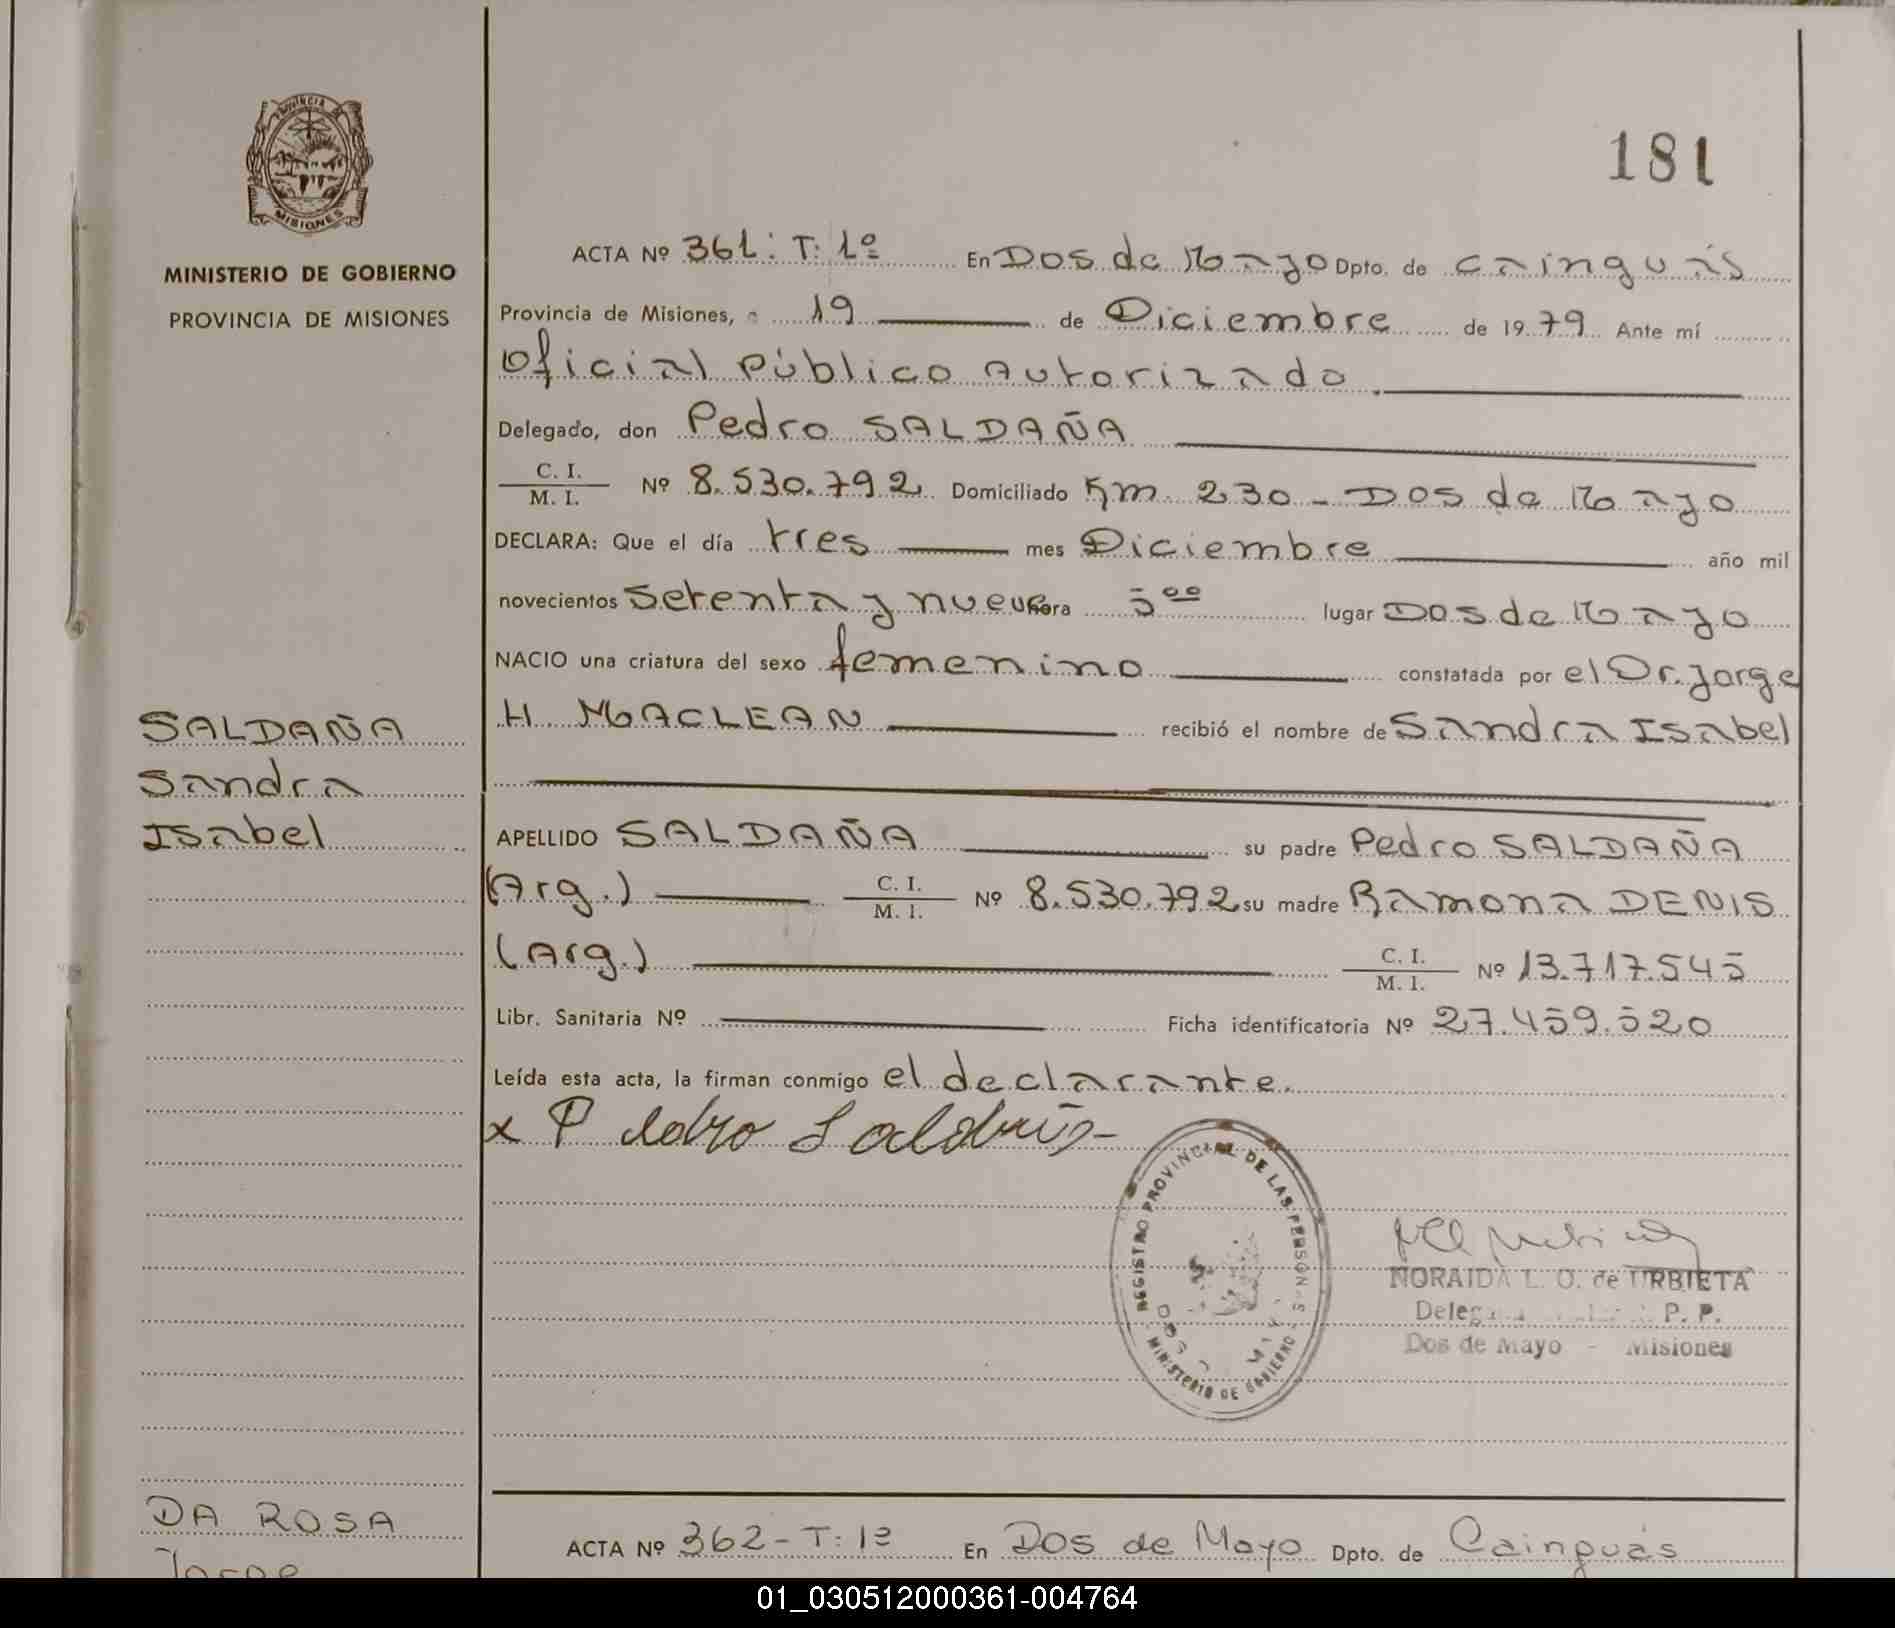 181
PROVINCIA DE
MISIONES
MINISTERIO DE GOBIERNO
PROVINCIA DE MISIONES
ACTA Nº 361: T: 1º En Dos de Mayo Dpto. de Cainguás
Provincia de Misiones, a 19 de Diciembre de 1979 Ante mí
Oficial Público Autorizado.
Delegado, don Pedro SALDAÑA
C. I.
M. I. Nº 8.530.792 Domiciliado Km. 230 - Dos de Mayo
DECLARA: Que el día tres mes Diciembre año mil
novecientos setenta y nueve hora 5 00 lugar Dos de Mayo
NACIO una criatura del sexo femenino constatada por el Dr. Jorge
H. MACLEAN recibió el nombre de Sandra Isabel
SALDAÑA
Sandra
Isabel
APELLIDO SALDAÑA su padre Pedro SALDAÑA
(Arg.) C. I.
M. I. Nº 8.530.792 su madre Ramona DENIS
(Arg.) C. I.
M. I. Nº 13.717.545
Libr. Sanitaria Nº Ficha identificatoria Nº 27.459.520
Leída esta acta, la firman conmigo el declarante.
x
REGISTRO PROVINCIAL DE LAS PERSONAS
MINISTERIO DE GOBIERNO
NORAIDA L. O. de URBIETA
P. P.
Dos de Mayo - Misiones
DA ROSA
Jorge
ACTA Nº 362 - T: 1º En Dos de Mayo Dpto. de Cainguás
01_030512000361-004764